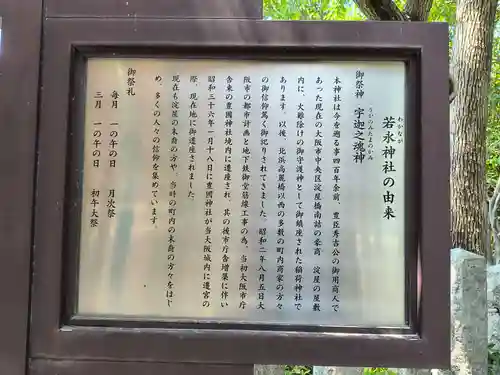 わかなが
若永神社の由来
御祭神
うかのみたまのかみ
宇迦之魂神
本神社は今を遡る事四百年余前、豊臣秀吉公の御用商人で
あった現在の大阪市中央区淀屋橋南詰の豪商 淀屋の屋敷
内に、火難除けの御守護神として御鎮座された稲荷神社で
あります。以後、北浜高麗橋以西の多数の町内商家の方々
の御信仰篤く御祀りされてきました。昭和二年八月五日大
阪市の都市計画と地下鉄御堂筋線工事の為、当初大阪市庁
舎東の豊國神社境内に遷座され、其の後市庁舎増築に伴い
昭和三十六年一月十八日に豊國神社が当大阪城内に遷宮の
際、現在地に御遷座されました。
現在も淀屋の末裔の方や、当時の町内の末裔の方々をはじ
め、多くの人々の信仰を集めています。
御祭礼
毎月 一の午の日 月次祭
三月 一の午の日 初午大祭